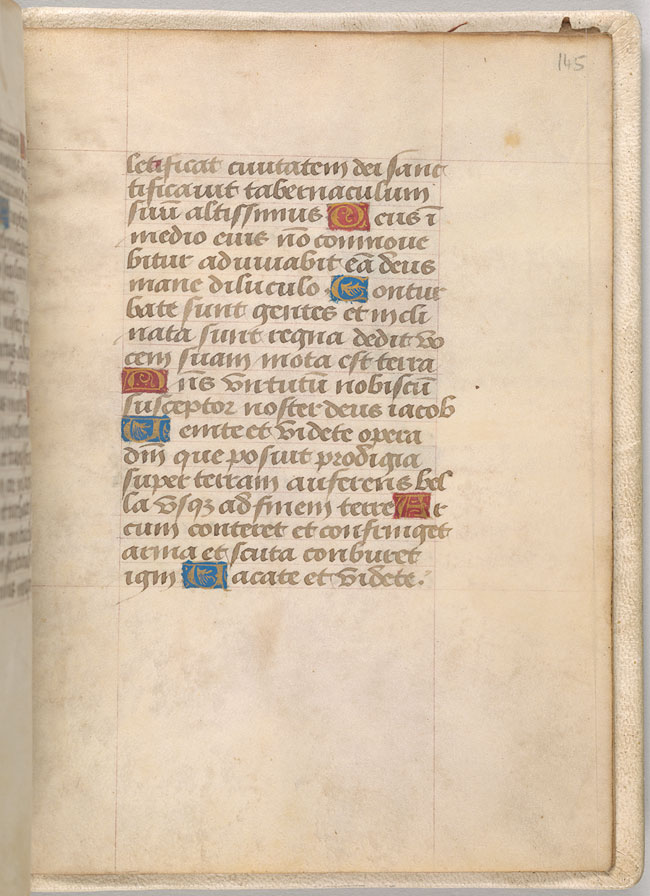 145
letificat ciuitatem dei sanc
tificauit tabernaculum
suū altissimus Deus ī
medio eius nō commoue
bitur adiuuabit eā deus
mane diluculo Contur
bate sunt gentes et incli
nata sunt regna dedit vo
cem suam mota est terra
Dn̄s virtutū nobiscū
susceptor noster deus iacob
Uenite et videte opera
dn̄i que posuit prodigia
super terram auferens bel
la vsqꝫ ad finem terre Ar
cum conteret et confringet
arma et scuta conburet
igni Uacate et videte.